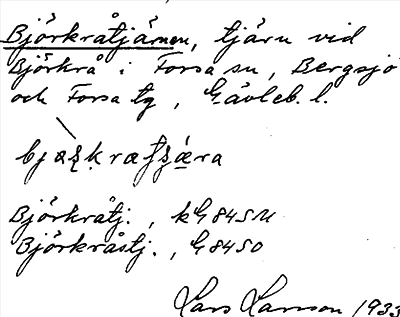 Björkråtjärnen, tjärn vid
Björkrå i Forsa sn, Bergsjö
och Forsa tg, Gävleb. l.
Björkråtj., kG 84 SU
Björkråstj., G 84 SO
Lars Larsson 1933